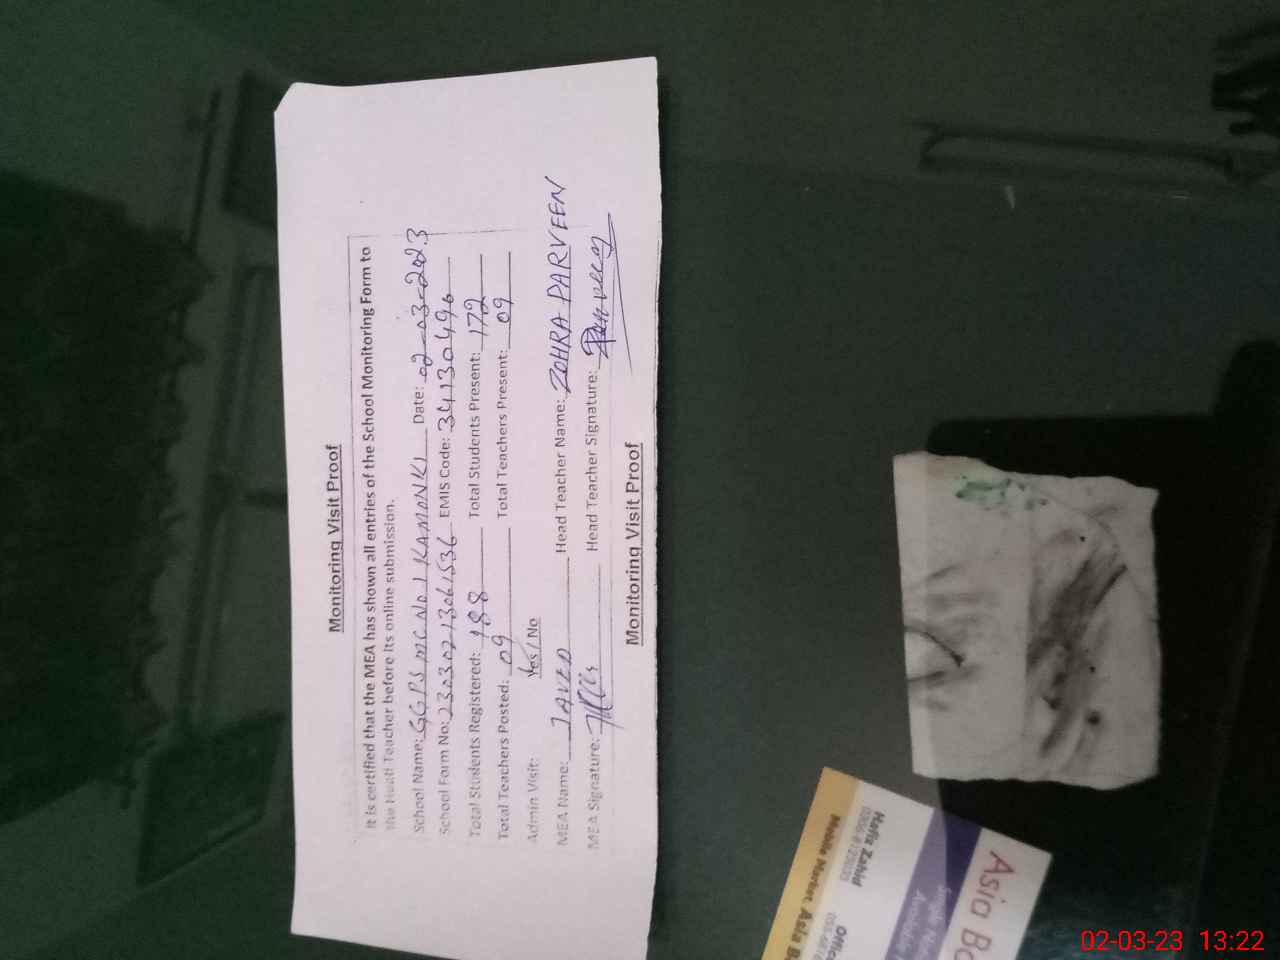 Monitoring Visit Proof
It is certified that the MEA has shown all entries of the School Monitoring Form to
the Head Teacher before its online submission.
School Name: GGPS MC No 1 KAMONKI Date: 02-03-2023
School Form No: 23030213061536 EMIS Code: 34130496
Total Students Registered: 188 Total Students Present: 172
Total Teachers Posted: 09 Total Teachers Present: 09
Admin Visit: Yes / No
MEA Name: JAVED Head Teacher Name: ZOHRA PARVEEN
MEA Signature: Head Teacher Signature: Parveen
Monitoring Visit Proof
Asia
Hafiz Zahid
Mobile Market, Asia
02-03-23 13:22